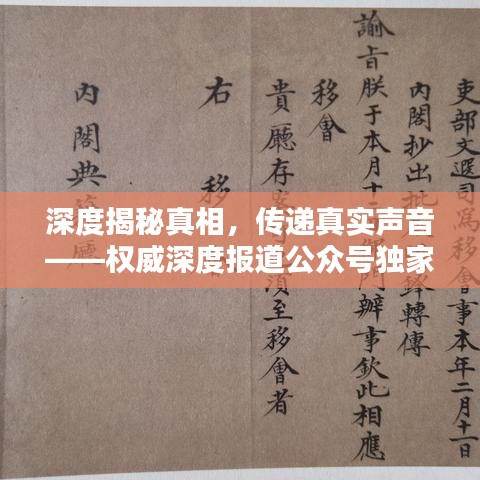 吏部文選司為移會事本年二月十一
內閣抄出 轉傳
諭旨朕于本月十 門辦事欽此相應
移會
貴廳存 須至移會者
右移
內閣典 廳
深度揭秘真相，传递真实声音
——权威深度报道公众号独家